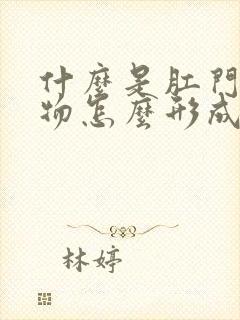 什麼是肛門
物怎麼形成
林婷